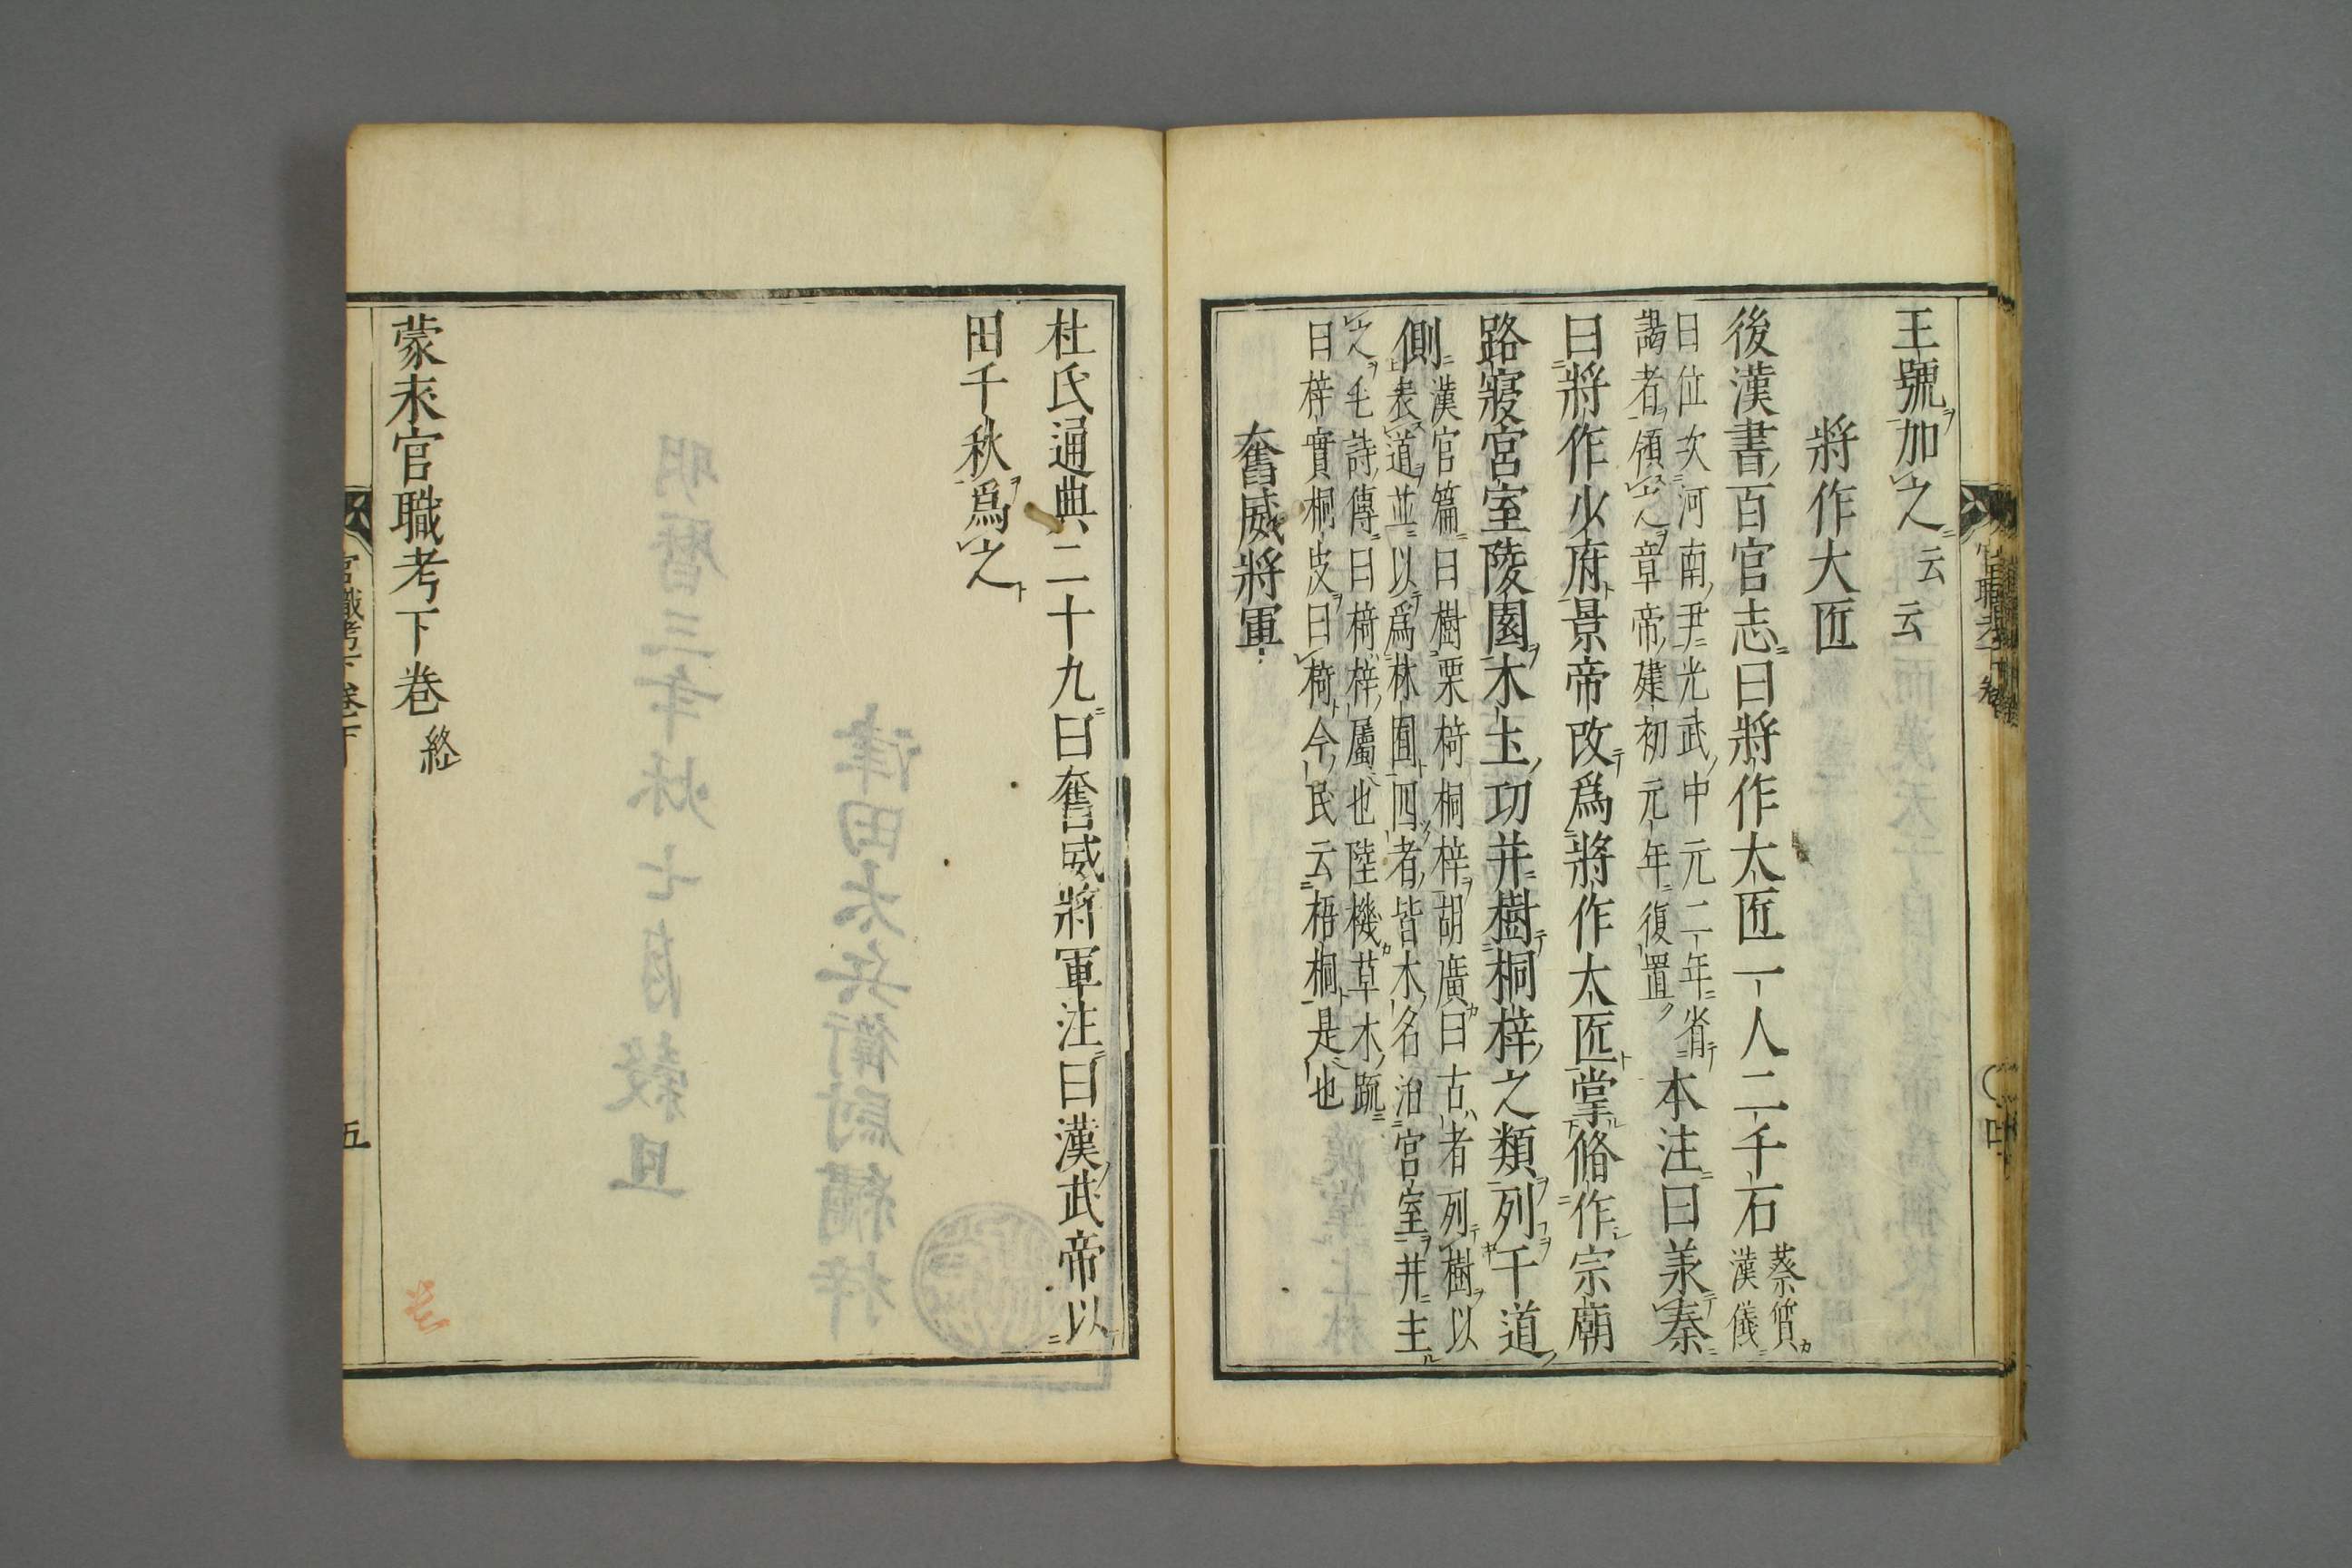 王號加之云云
將作大匠
後漢書百官志曰將作大匠一人二千石蔡質
漢儀
曰位次河南尹光武中元二年省
謁者領之章帝建初元年復置
本注曰羕秦
曰將作少府景帝改爲將作大匠掌脩作宗廟
路寢宮室陵園木土功并樹桐梓之類列于道
側漢官篇曰樹栗椅桐梓胡廣曰古者列樹以
表道並以爲林囿四者皆木名治宮室并主
之毛詩傳曰椅梓屬也陸機草木疏
曰梓實桐皮曰椅今民云梧桐是也
奮威將軍
官職考下卷
四
杜氏通典二十九曰奮威將軍注曰漢武帝以
田千秋爲之
蒙求官職考下卷終
官職考下卷
五
明曆三年秌七月穀旦
津田太兵衛尉繡梓